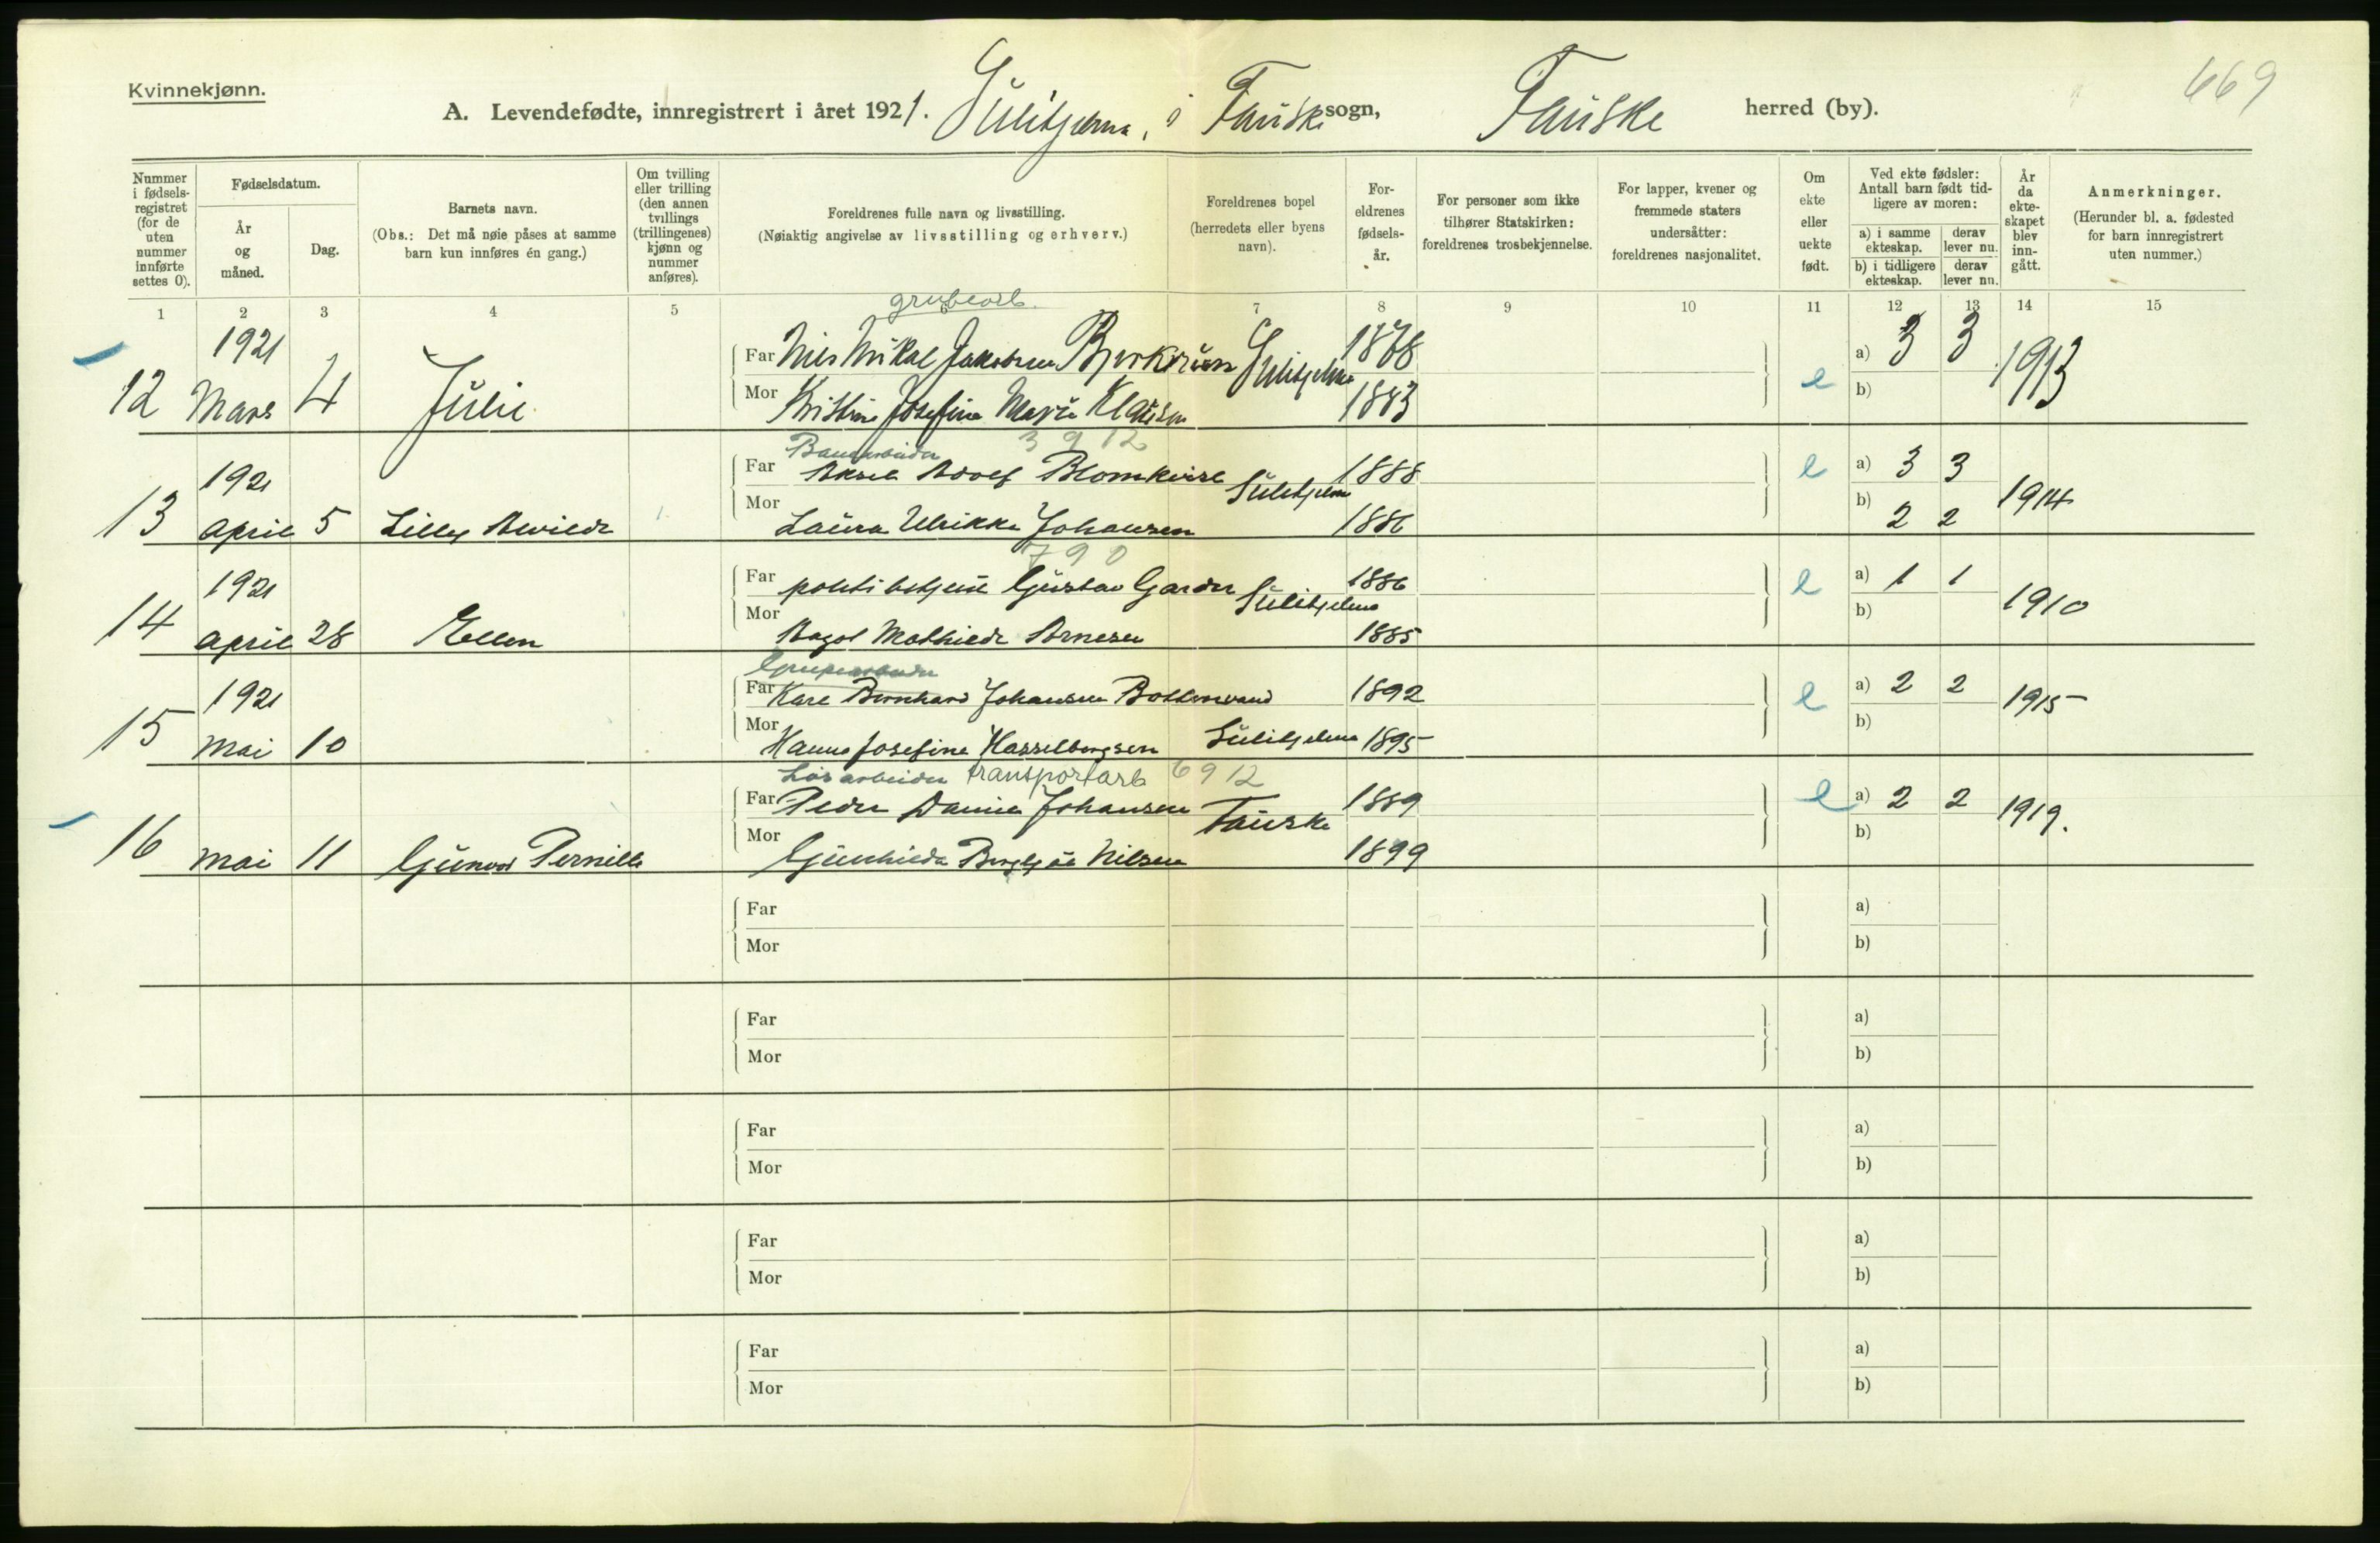 Kvinnekjønn.
669
A. Levendefødte, innregistrert i året 1921. Sulitjelma, i Fauske sogn, Fauske herred (by).
Nummer i fødsels- registret (for de uten nummer innførte settes 0).
Fødselsdatum.
År og måned.
Dag.
Barnets navn.
(Obs.: Det må nøie påses at samme barn kun innføres én gang.)
Om tvilling eller trilling (den annen tvillings (trillingenes) kjønn og nummer anføres).
Foreldrenes fulle navn og livsstilling.
(Nøiaktig angivelse av livsstilling og erhverv.)
Foreldrenes bopel (herredets eller byens navn).
For- eldrenes fødsels- år.
For personer som ikke tilhører Statskirken: foreldrenes trosbekjennelse.
For lapper, kvener og fremmede staters undersåtter: foreldrenes nasjonalitet.
Om ekte eller uekte født.
Ved ekte fødsler: Antall barn født tid- ligere av moren:
a) i samme ekteskap.
derav lever nu.
b) i tidligere ekteskap.
derav lever nu.
År da ekte- skapet blev inn- gått.
Anmerkninger.
(Herunder bl. a. fødested for barn innregistrert uten nummer.)
1 2 3 4 5 6 7 8 9 10 11 12 13 14 15
grubearb.
1921
Far Nils Mikal Jakobsen Sulitjelma 1878 a) 3 3 1913
12 Mars 4 Julie
Mor Kristine Josefine Marie Klausen 1883 e b)
3 9 12
1921
Far Aksel Adolf Blomkvist Sulitjelma 1888 e a) 3 3 1914
13 April 5 Lilly Alvilde
Mor Laura Ulrikke Johansen 1886 b) 2 2
7 9 0
1921
Far politibetjent Gustav Garder Sulitjelma 1886 e a) 1 1 1910
14 April 28 Ellen
Mor Aagot Mathilde Arnesen 1885 b)
Grubearbeider
1921
Far Karl Bernhard Johansen 1892 e a) 2 2 1915
15 Mai 10
Mor Hanna Josefine Hasselbergsen Sulitjelma 1895 b)
Løsarbeider transportarb 6 9 12
Far Peder Daniel Johansen Fauske 1889 e a) 2 2 1919.
16 Mai 11 Gunvor Pernille
Mor Gunhilda Bergljot Nilsen 1899 b)
Far a)
Mor b)
Far a)
Mor b)
Far a)
Mor b)
Far a)
Mor b)
Far a)
Mor b)